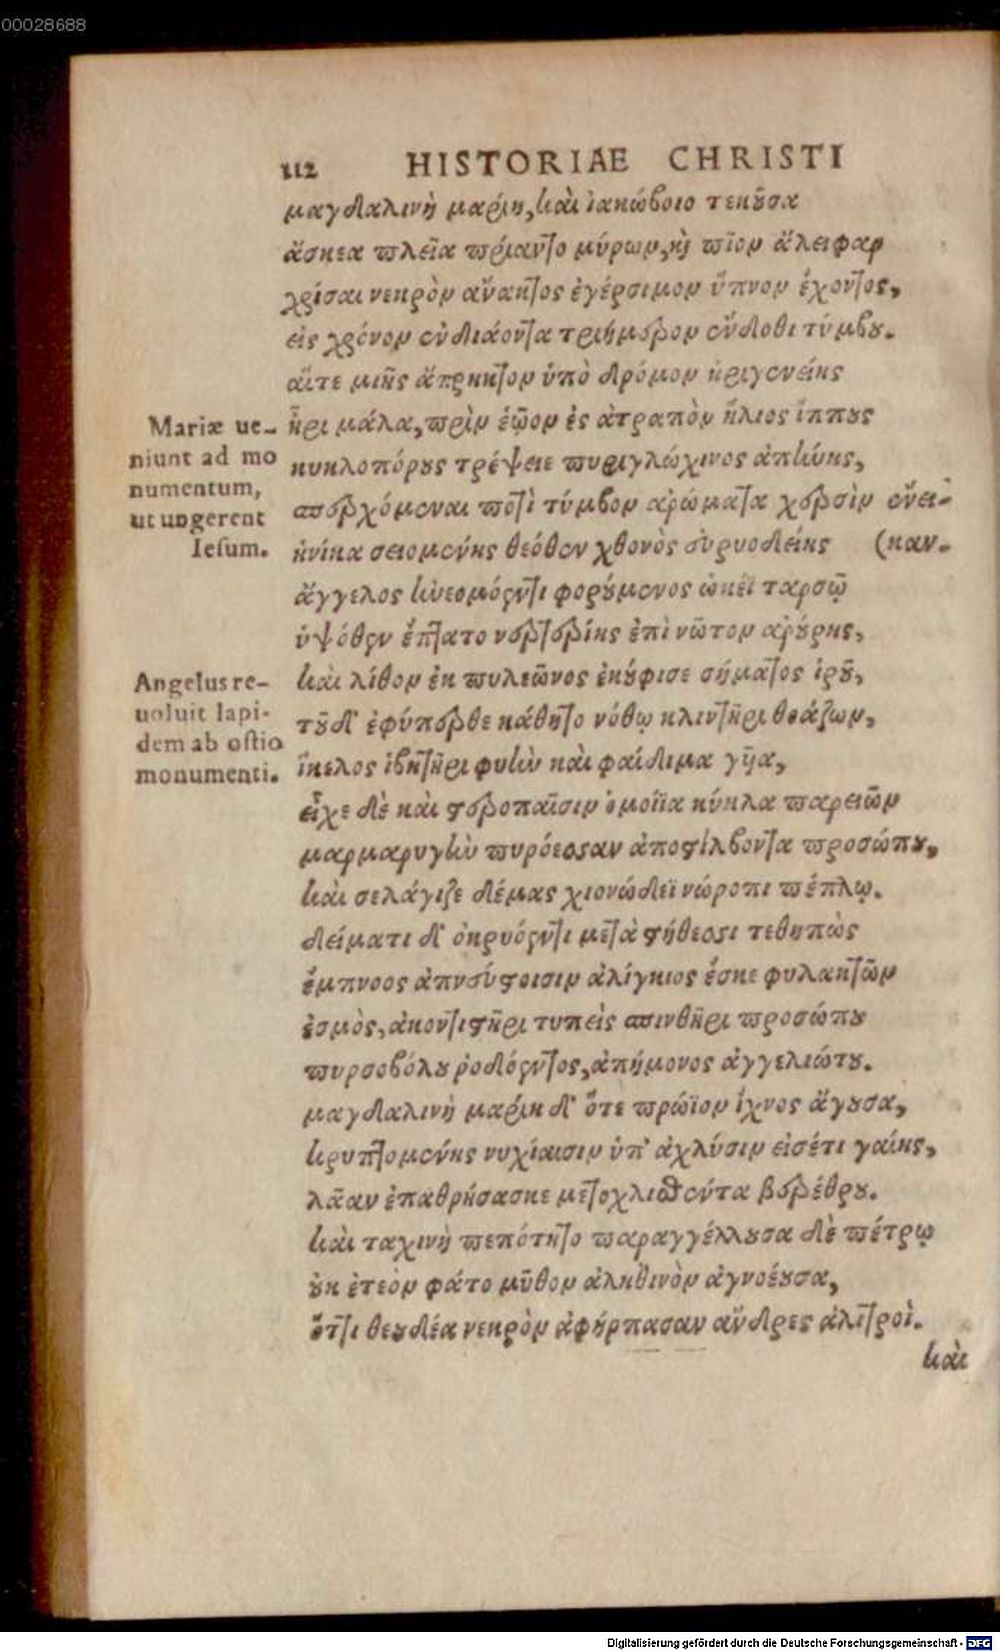 00028688
112 HISTORIAE CHRISTI
μαγδαλινὴ μαρίη, καὶ ἰακώβοιο τεκοῦσα
ἄσκεα πλεῖα πρίαντο μύρων, καὶ πῖον ἄλειφαρ
χρίσαι νεκρὸν ἄνακτος ἐγέρσιμον ὕπνον ἔχοντος,
εἰς χρόνον ἐνδιάοντα τριήμερον ἔνδοθι τύμβου.
αἵτε μιῆς ἄπρηκτον ὑπὸ δρόμον ἠριγενείης
ἦρι μάλα, πρὶν ἑῷον ἐς ἀτραπὸν ἥλιος ἵππους
κυκλοπόρους τρέψειε πυριγλώχινος ἀπήνης,
ἀπερχόμεναι ποτὶ τύμβον ἀρώματα χερσὶν ἔνει-
ἡνίκα σειομένης θεόθεν χθονὸς εὐρυοδείης (καν.
ἄγγελος ἠνεομόεντι φορούμενος ὠκέϊ ταρσῷ
ὑψόθεν ἔπτατο νερτερίης ἐπὶ νῶτον ἀρούρης,
καὶ λίθον ἐκ πυλεῶνος ἐκούφισε σήματος ἱροῦ,
τοῦ δ' ἐφύπερθε κάθητο νόθῳ κλιντῆρι θοάζων,
ἴκελος ἡβητῆρι φυὴν καὶ φαίδιμα γυῖα,
εἶχε δὲ καὶ στεροπαῖσιν ὁμοίϊα κύκλα παρειῶν
μαρμαρυγὴν πυρόεσσαν ἀποστίλβοντα προσώπου,
καὶ σελάγιζε δέμας χιονώδεϊ νώροπι πέπλῳ.
δείματι δ' ὀκρυόεντι μετὰ στήθεσσι τεθηπὼς
ἔμπνοος ἀπνεύστοισιν ἀλίγκιος ἔσκε φυλακτῶν
ἑσμὸς, ἀκοντιστῆρι τυπεὶς σπινθῆρι προσώπου
πυρσοβόλου ῥοδόεντος, ἀπήμονος ἀγγελιώτου.
μαγδαλινὴ μαρίη δ' ὅτε πρώϊον ἴχνος ἄγουσα,
κρυπτομένης νυχίαισιν ὑπ' ἀχλύσιν εἰσέτι γαίης,
λᾶαν ἐπαθρήσασκε μετοχλισθέντα βερέθρου.
καὶ ταχινὴ πεπότητο παραγγέλλουσα δὲ πέτρῳ
οὐκ ἐτεὸν φάτο μῦθον ἀληθινὸν ἀγνοέουσα,
ὅττι θεουδέα νεκρὸν ἀφήρπασαν ἄνδρες ἀλιτροί.
καὶ
Mariæ ue-
niunt ad mo
numentum,
ut ungerent
Iesum.
Angelus re-
uoluit lapi-
dem ab ostio
monumenti.
Digitalisierung gefördert durch die Deutsche Forschungsgemeinschaft - DFG